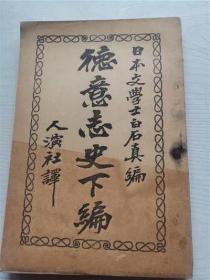 日本文學士白石真編
德意志史下編
人演社譯